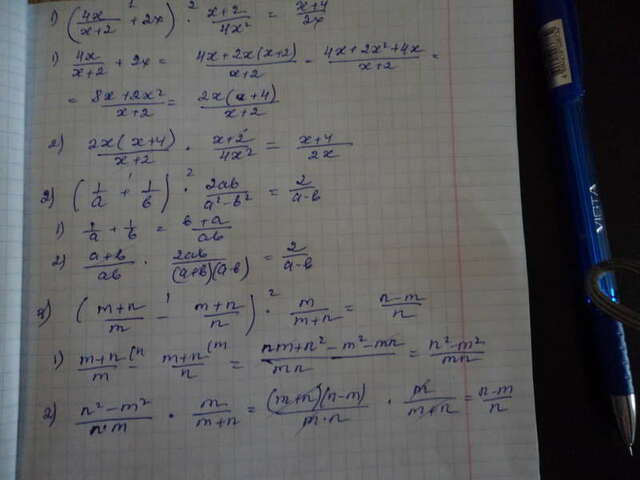 1) (4x/(x+2) + 2x) · (x+2)/(4x²) = (x+4)/(2x)
1) 4x/(x+2) + 2x = (4x+2x(x+2))/(x+2) = (4x+2x²+4x)/(x+2) =
= (8x+2x²)/(x+2) = 2x(x+4)/(x+2)
2) 2x(x+4)/(x+2) · (x+2)/(4x²) = (x+4)/(2x)
2) (1/a + 1/b) · 2ab/(a²-b²) = 2/(a-b)
1) 1/a + 1/b = (b+a)/(ab)
2) (a+b)/(ab) · 2ab/((a+b)(a-b)) = 2/(a-b)
((m+n)/m - (m+n)/n) · m/(m+n) = (n-m)/n
1) (m+n)/m (n - (m+n)/n (m = (nm+n²-m²-mn)/(mn) = (n²-m²)/(mn)
2) (n²-m²)/(n·m) · m/(m+n) = (m+n)(n-m)/(m·n) · m/(m+n) = (n-m)/n
VISTA